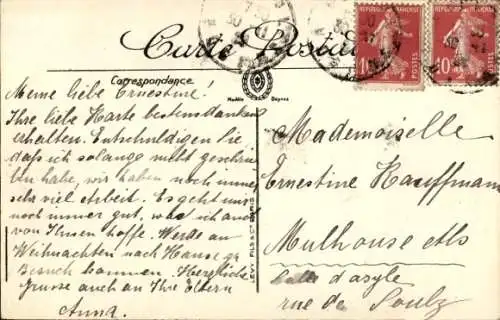 Carte Postale
Correspondance
Meine liebe Ernestine!
Ihre liebe Karte bestens dankend
erhalten. Entschuldigen Sie
dass ich solange nicht geschrie-
ben habe, wir haben noch immer
sehr viel Arbeit. Es geht uns
noch immer gut, was ich auch
von Ihnen hoffe. Werde an
Weihnachten nach Hause zu
Besuch kommen. Herzliche
Grüsse auch an Ihre Eltern
Anna.
LEVY FILS & Cie PARIS
RÉPUBLIQUE FRANÇAISE
10 POSTES
10 POSTES
Mademoiselle
Ernestine Kauffmann
Mulhouse Als
Salle d'asyle
rue de Soulz